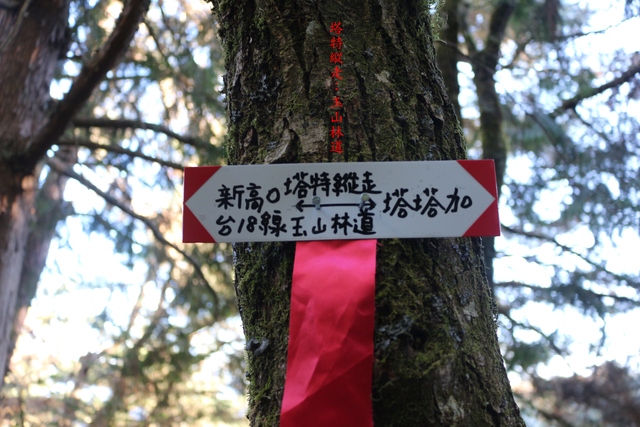 塔特縱走-玉山林道
新高口 塔特縱走 塔塔加
台18線 玉山林道